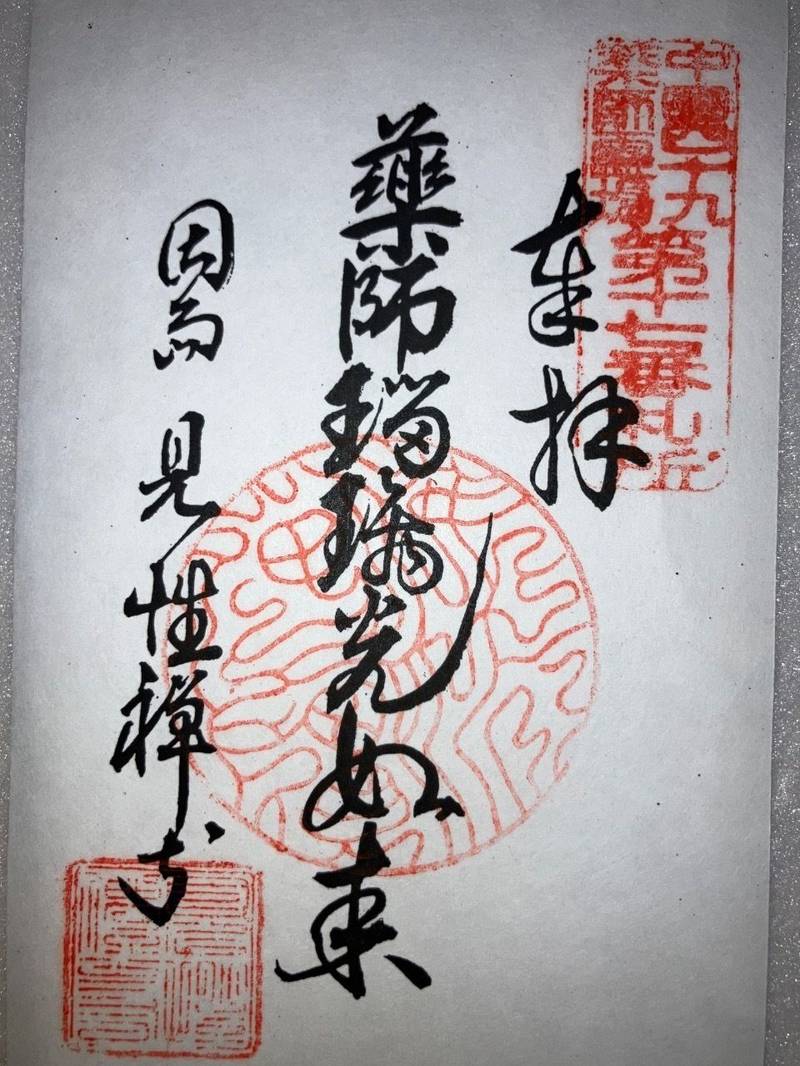 中国四十九
薬師霊場
第十七番札所
奉拝
薬師瑠璃光如来
因島 見性禅寺